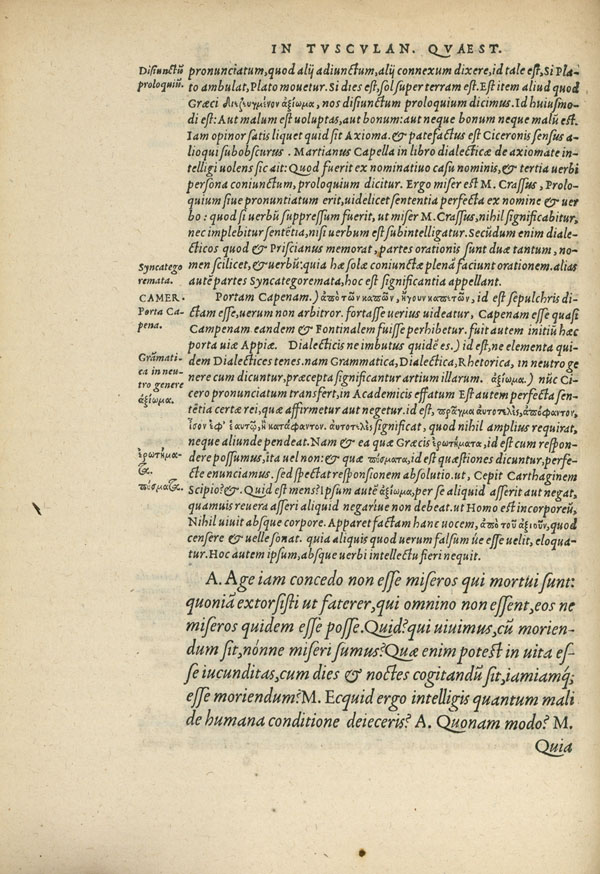 IN TVSCVLAN. QVAEST.
Disiunctũ
proloquiũ.
pronunciatum, quod alij adiunctum, alij connexum dixere, id tale est, Si Pla-
to ambulat, Plato mouetur. Si dies est, sol super terram est. Est item aliud quod
Græci διεζευγμένον ἀξίωμα, nos disiunctum proloquium dicimus. Id huiusmo-
di est: Aut malum est uoluptas, aut bonum: aut neque bonum neque malũ est.
Iam opinor satis liquet quid sit Axioma. & patefactus est Ciceronis sensus a-
lioqui subobscurus. Martianus Capella in libro dialecticæ de axiomate in-
telligi uolens sic ait: Quod fuerit ex nominatiuo casu nominis, & tertia uerbi
persona coniunctum, proloquium dicitur. Ergo miser est M. Crassus, Prolo-
quium siue pronuntiatum erit, uidelicet sententia perfecta ex nomine & uer
bo: quod si uerbũ suppressum fuerit, ut miser M. Crassus, nihil significabitur,
nec implebitur sentẽtia, nisi uerbum est subintelligatur. Secũdum enim diale-
cticos quod & Priscianus memorat, partes orationis sunt duæ tantum, no-
Syncatego
remata.
men scilicet, & uerbũ: quia hæ solæ coniunctæ plenã faciunt orationem. alias
autẽ partes Syncategoremata, hoc est significantia appellant.
CAMER.
Porta Ca-
pena.
Portam Capenam.) ἀπὸ τῶν καπῶν, ἤγουν καπιτῶν, id est sepulchris di-
ctam esse, uerum non arbitror. fortasse uerius uideatur, Capenam esse quasi
Campenam eandem & Fontinalem fuisse perhibetur. fuit autem initiũ hæc
porta uiæ Appiæ. Dialecticis ne imbutus quidẽ es.) id est, ne elementa qui-
Grãmati-
ca in neu-
tro genere
ἀξίωμα.
dem Dialectices tenes. nam Grammatica, Dialectica, Rhetorica, in neutro ge
nere cum dicuntur, præcepta significant artium illarum. ἀξίωμα.) nũc Ci-
cero pronunciatum transfert, in Academicis effatum Est autem perfecta sen-
tẽtia certæ rei, quæ affirmetur aut negetur. id est, πρᾶγμα αυτοτελὲς, ἀπόφαντον,
ὅσον ἐφ' ἑαυτῷ, ἢ κατάφαντον. αὐτοτελὲς significat, quod nihil amplius requirat,
neque aliunde pendeat. Nam & ea quæ Græcis ἐρωτήματα, id est cum respon-
ἐρωτήμα-
τα.
dere possumus, ita uel non: & quæ πύσματα, id est quæstiones dicuntur, perfe-
cte enunciamus. sed spectat responsionem absolutio. ut, Cepit Carthaginem
πύσματα.
Scipio? &. Quid est mens? ipsum autẽ ἀξίωμα, per se aliquid asserit aut negat,
quamuis reuera asseri aliquid negariue non debeat. ut Homo est incorporeũ,
Nihil uiuit absque corpore. Apparet factam hanc uocem, ἀπὸ τοῦ ἀξιοῦν, quod
censere & uelle sonat. quia aliquis quod uerum falsum ue esse uelit, eloqua-
tur. Hoc autem ipsum, absque uerbi intellectu fieri nequit.
A. Age iam concedo non esse miseros qui mortui sunt:
quoniã extorsisti ut faterer, qui omnino non essent, eos ne
miseros quidem esse posse. Quid? qui uiuimus, cũ morien-
dum sit, nónne miseri sumus? Quæ enim potest in uita es-
se iucunditas, cum dies & noctes cogitandũ sit, iamiamq́;
esse moriendum? M. Ecquid ergo intelligis quantum mali
de humana conditione deieceris? A. Quonam modo? M.
Quia